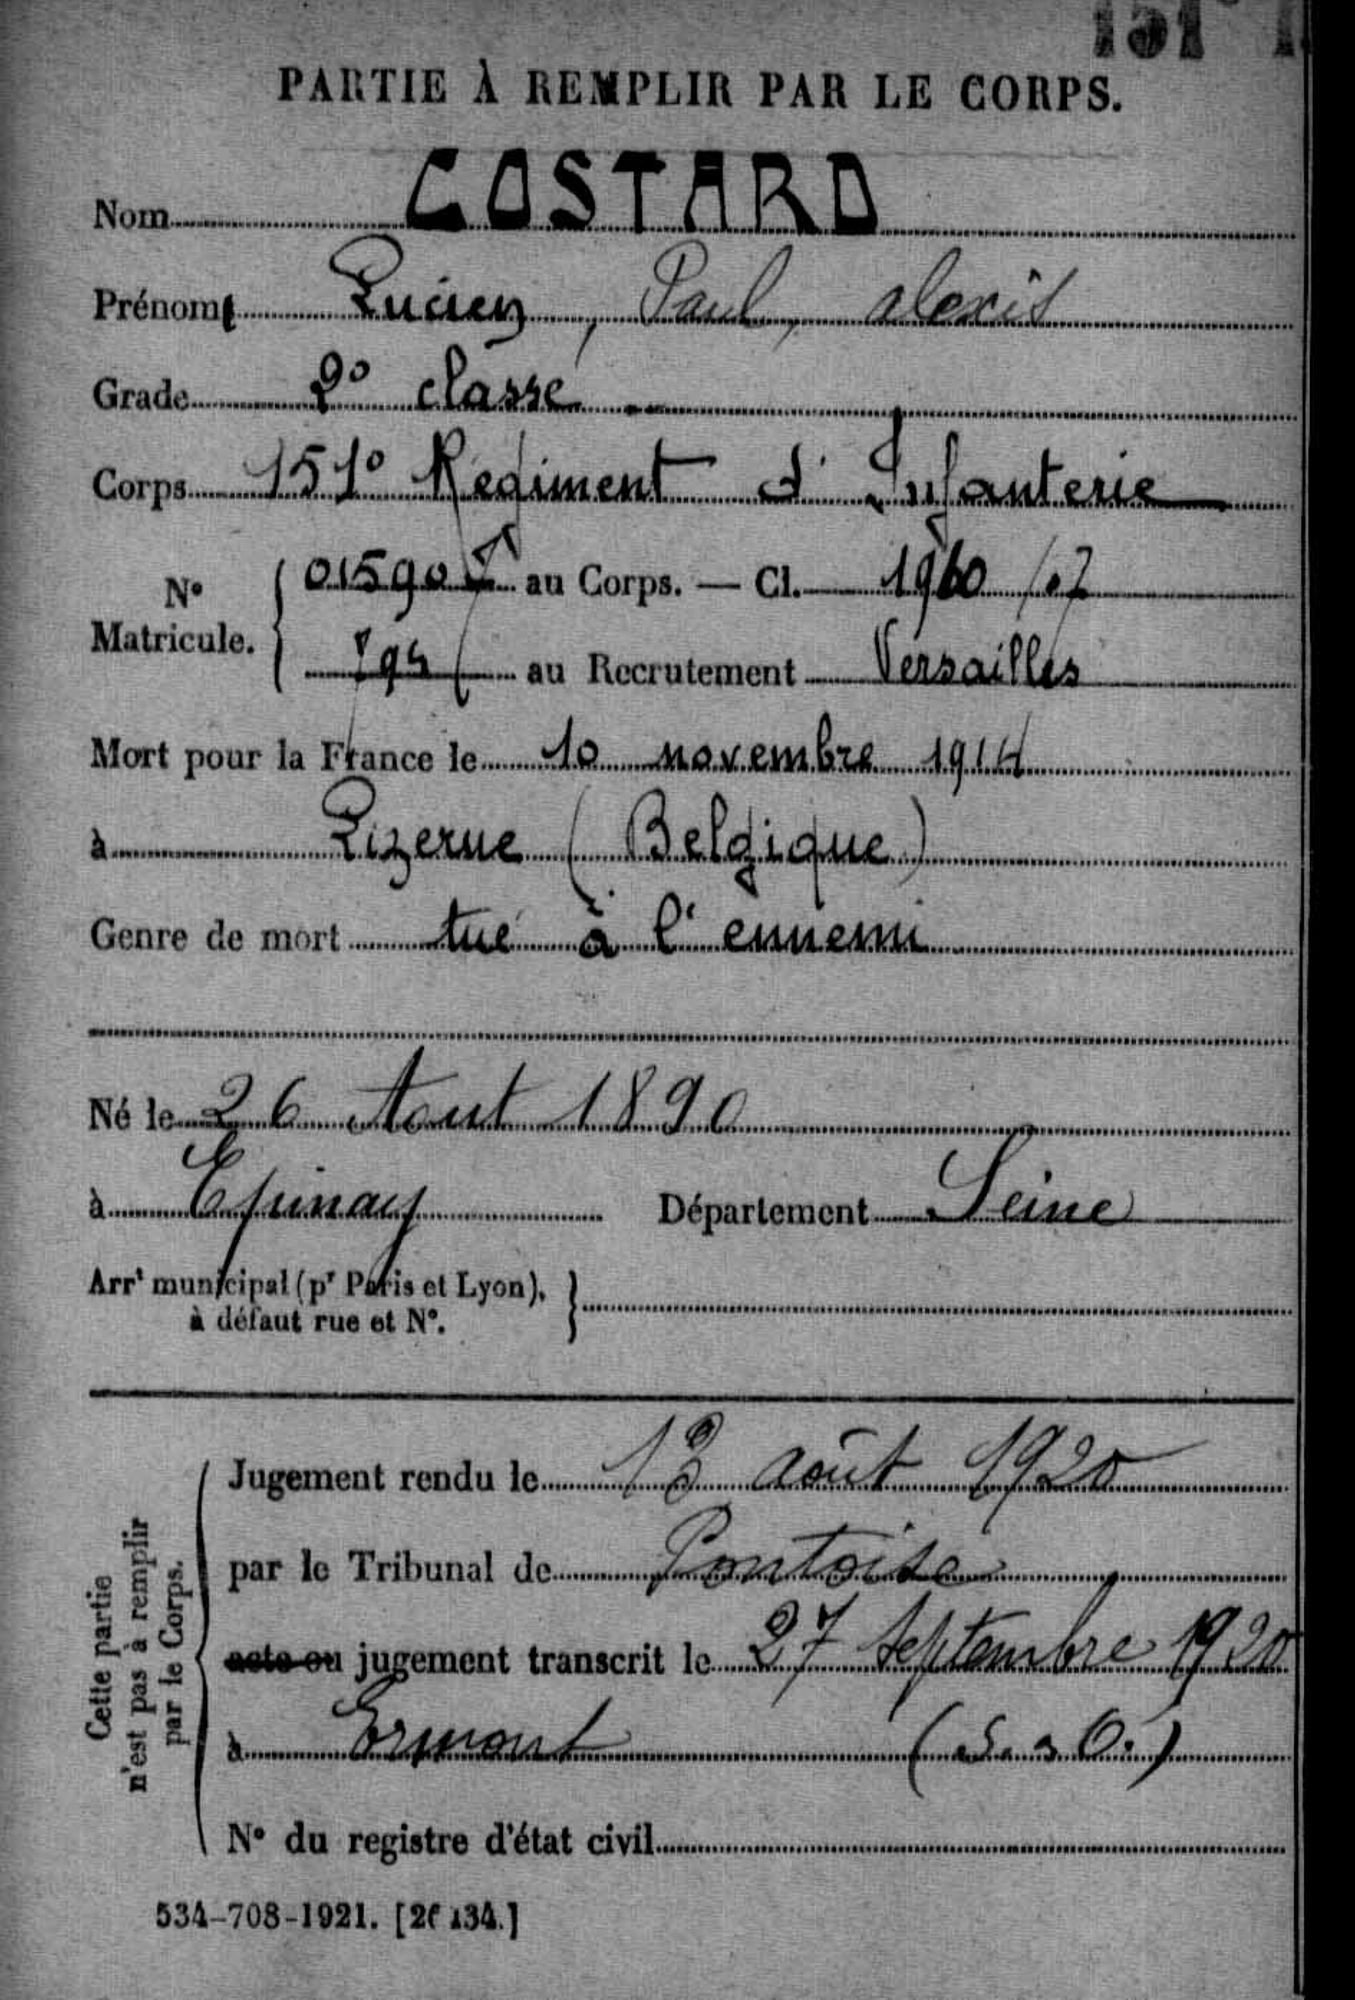 151e
PARTIE À REMPLIR PAR LE CORPS.
Nom COSTARD
Prénoms Lucien, Paul, Alexis
Grade 2e classe
Corps 151e Régiment d'Infanterie
No Matricule. 01590 au Corps. — Cl. 1910 /07
au Recrutement Versailles
Mort pour la France le 10 novembre 1914
à Lizerne (Belgique)
Genre de mort tué à l'ennemi
Né le 26 Aout 1890
à Epinay Département Seine
Arrt municipal (pr Paris et Lyon),
à défaut rue et No.
Cette partie
n'est pas à remplir
par le Corps.
Jugement rendu le 13 août 1920
par le Tribunal de Pontoise
acte ou jugement transcrit le 27 Septembre 1920
à Ermont (S. & O.)
No du registre d'état civil
534-708-1921. [26134.]